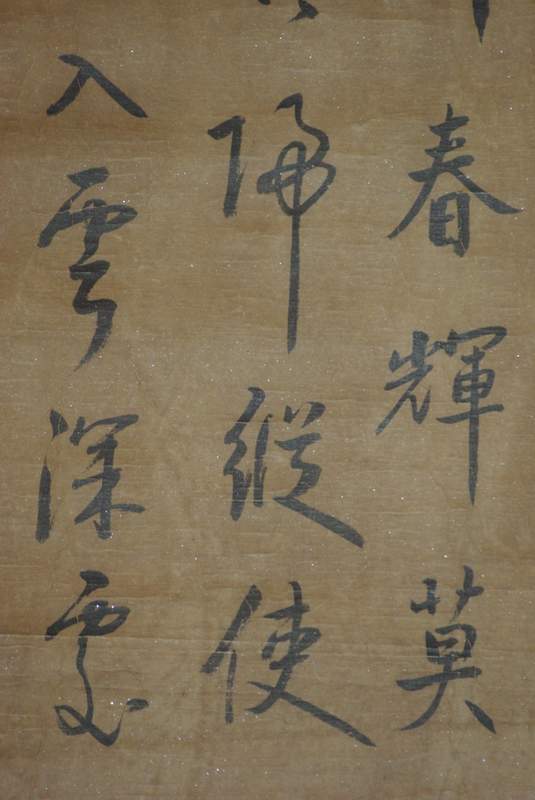 春輝莫
歸縱使
入雲深處